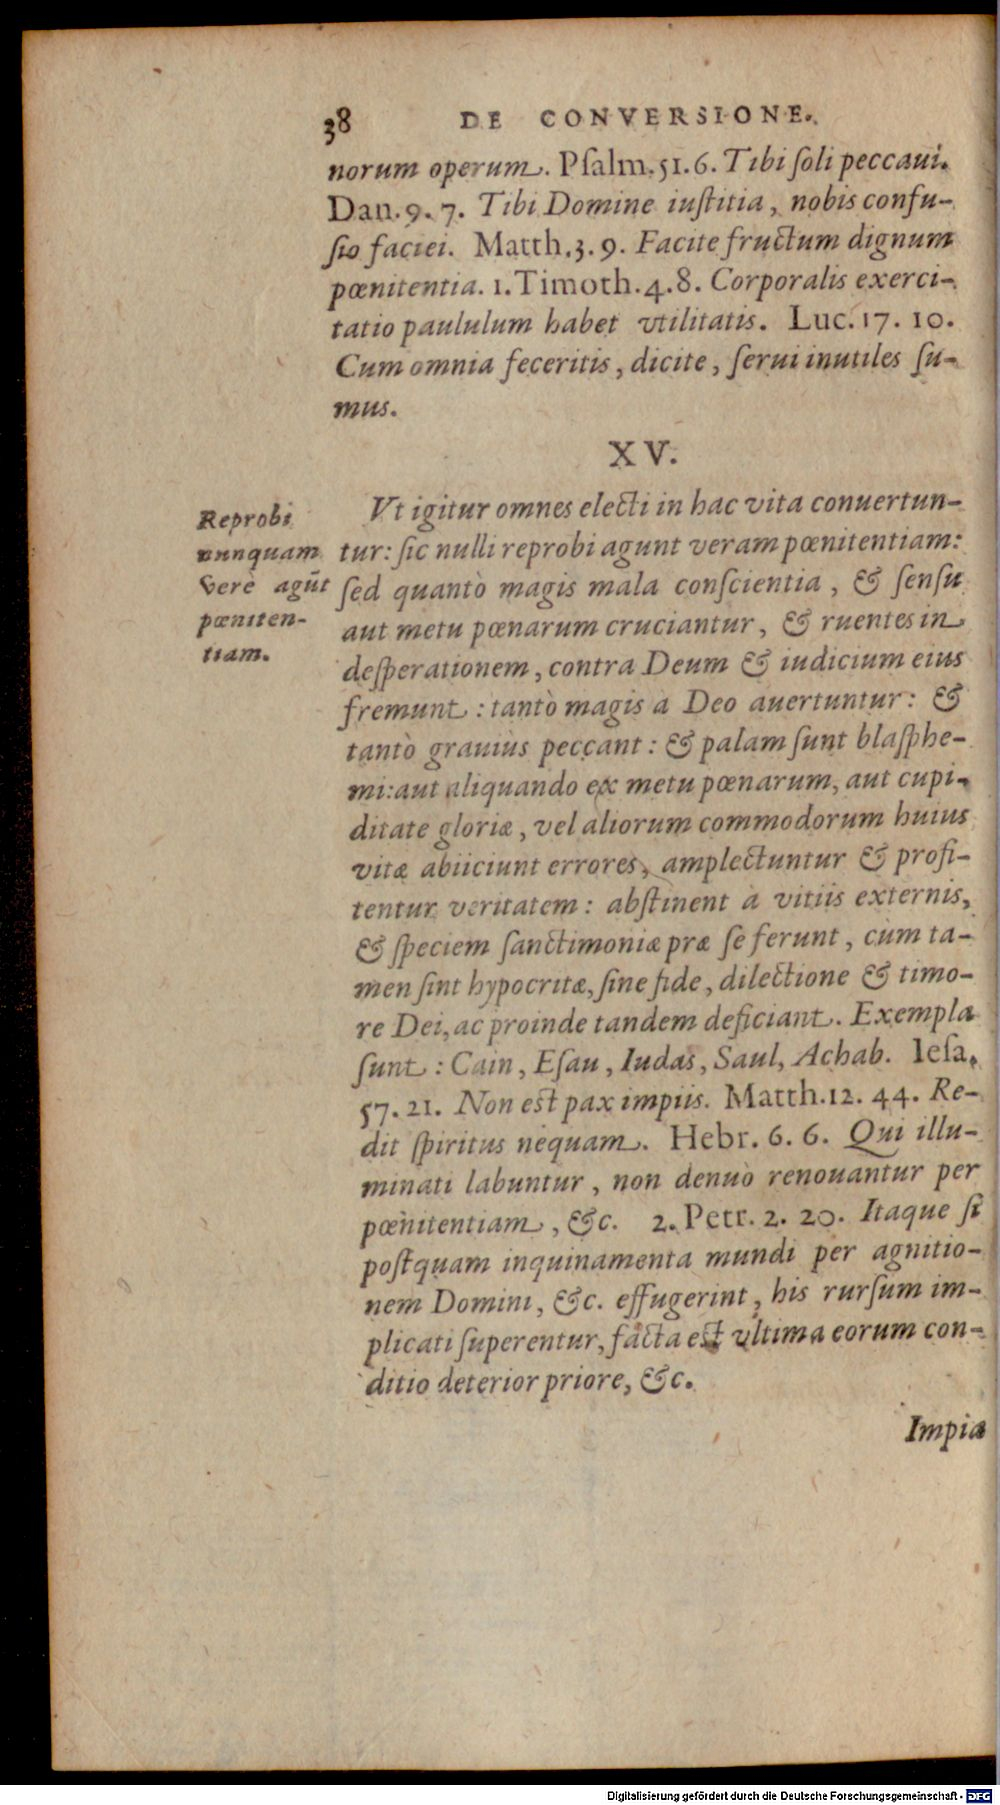 38 DE CONVERSIONE.
norum operum. Pſalm. 51. 6. Tibi ſoli peccaui.
Dan. 9. 7. Tibi Domine iuſtitia, nobis confu-
ſio faciei. Matth. 3. 9. Facite fructum dignum
pœnitentia. 1. Timoth. 4. 8. Corporalis exerci-
tatio paululum habet vtilitatis. Luc. 17. 10.
Cum omnia feceritis, dicite, ſerui inutiles ſu-
mus.
XV.
Reprobi
nunquam
verè agūt
pœniten-
tiam.
Vt igitur omnes electi in hac vita conuertun-
tur: ſic nulli reprobi agunt veram pœnitentiam:
ſed quantò magis mala conſcientia, & ſenſu
aut metu pœnarum cruciantur, & ruentes in
deſperationem, contra Deum & iudicium eius
fremunt: tantò magis a Deo auertuntur: &
tantò grauiùs peccant: & palam ſunt blaſphe-
mi: aut aliquando ex metu pœnarum, aut cupi-
ditate gloriæ, vel aliorum commodorum huius
vitæ abiiciunt errores, amplectuntur & profi-
tentur veritatem: abſtinent à vitiis externis,
& ſpeciem ſanctimoniæ præ ſe ferunt, cùm ta-
men ſint hypocritæ, ſine fide, dilectione & timo-
re Dei, ac proinde tandem deficiant. Exempla
ſunt: Cain, Eſau, Iudas, Saul, Achab. Ieſa.
57. 21. Non eſt pax impiis. Matth. 12. 44. Re-
dit ſpiritus nequam. Hebr. 6. 6. Qui illu-
minati labuntur, non denuò renouantur per
pœnitentiam, &c. 2. Petr. 2. 20. Itaque ſi
poſtquam inquinamenta mundi per agnitio-
nem Domini, &c. effugerint, his rurſum im-
plicati ſuperentur, facta eſt vltima eorum con-
ditio deterior priore, &c.
Impiæ
Digitalisierung gefördert durch die Deutsche Forschungsgemeinschaft - DFG